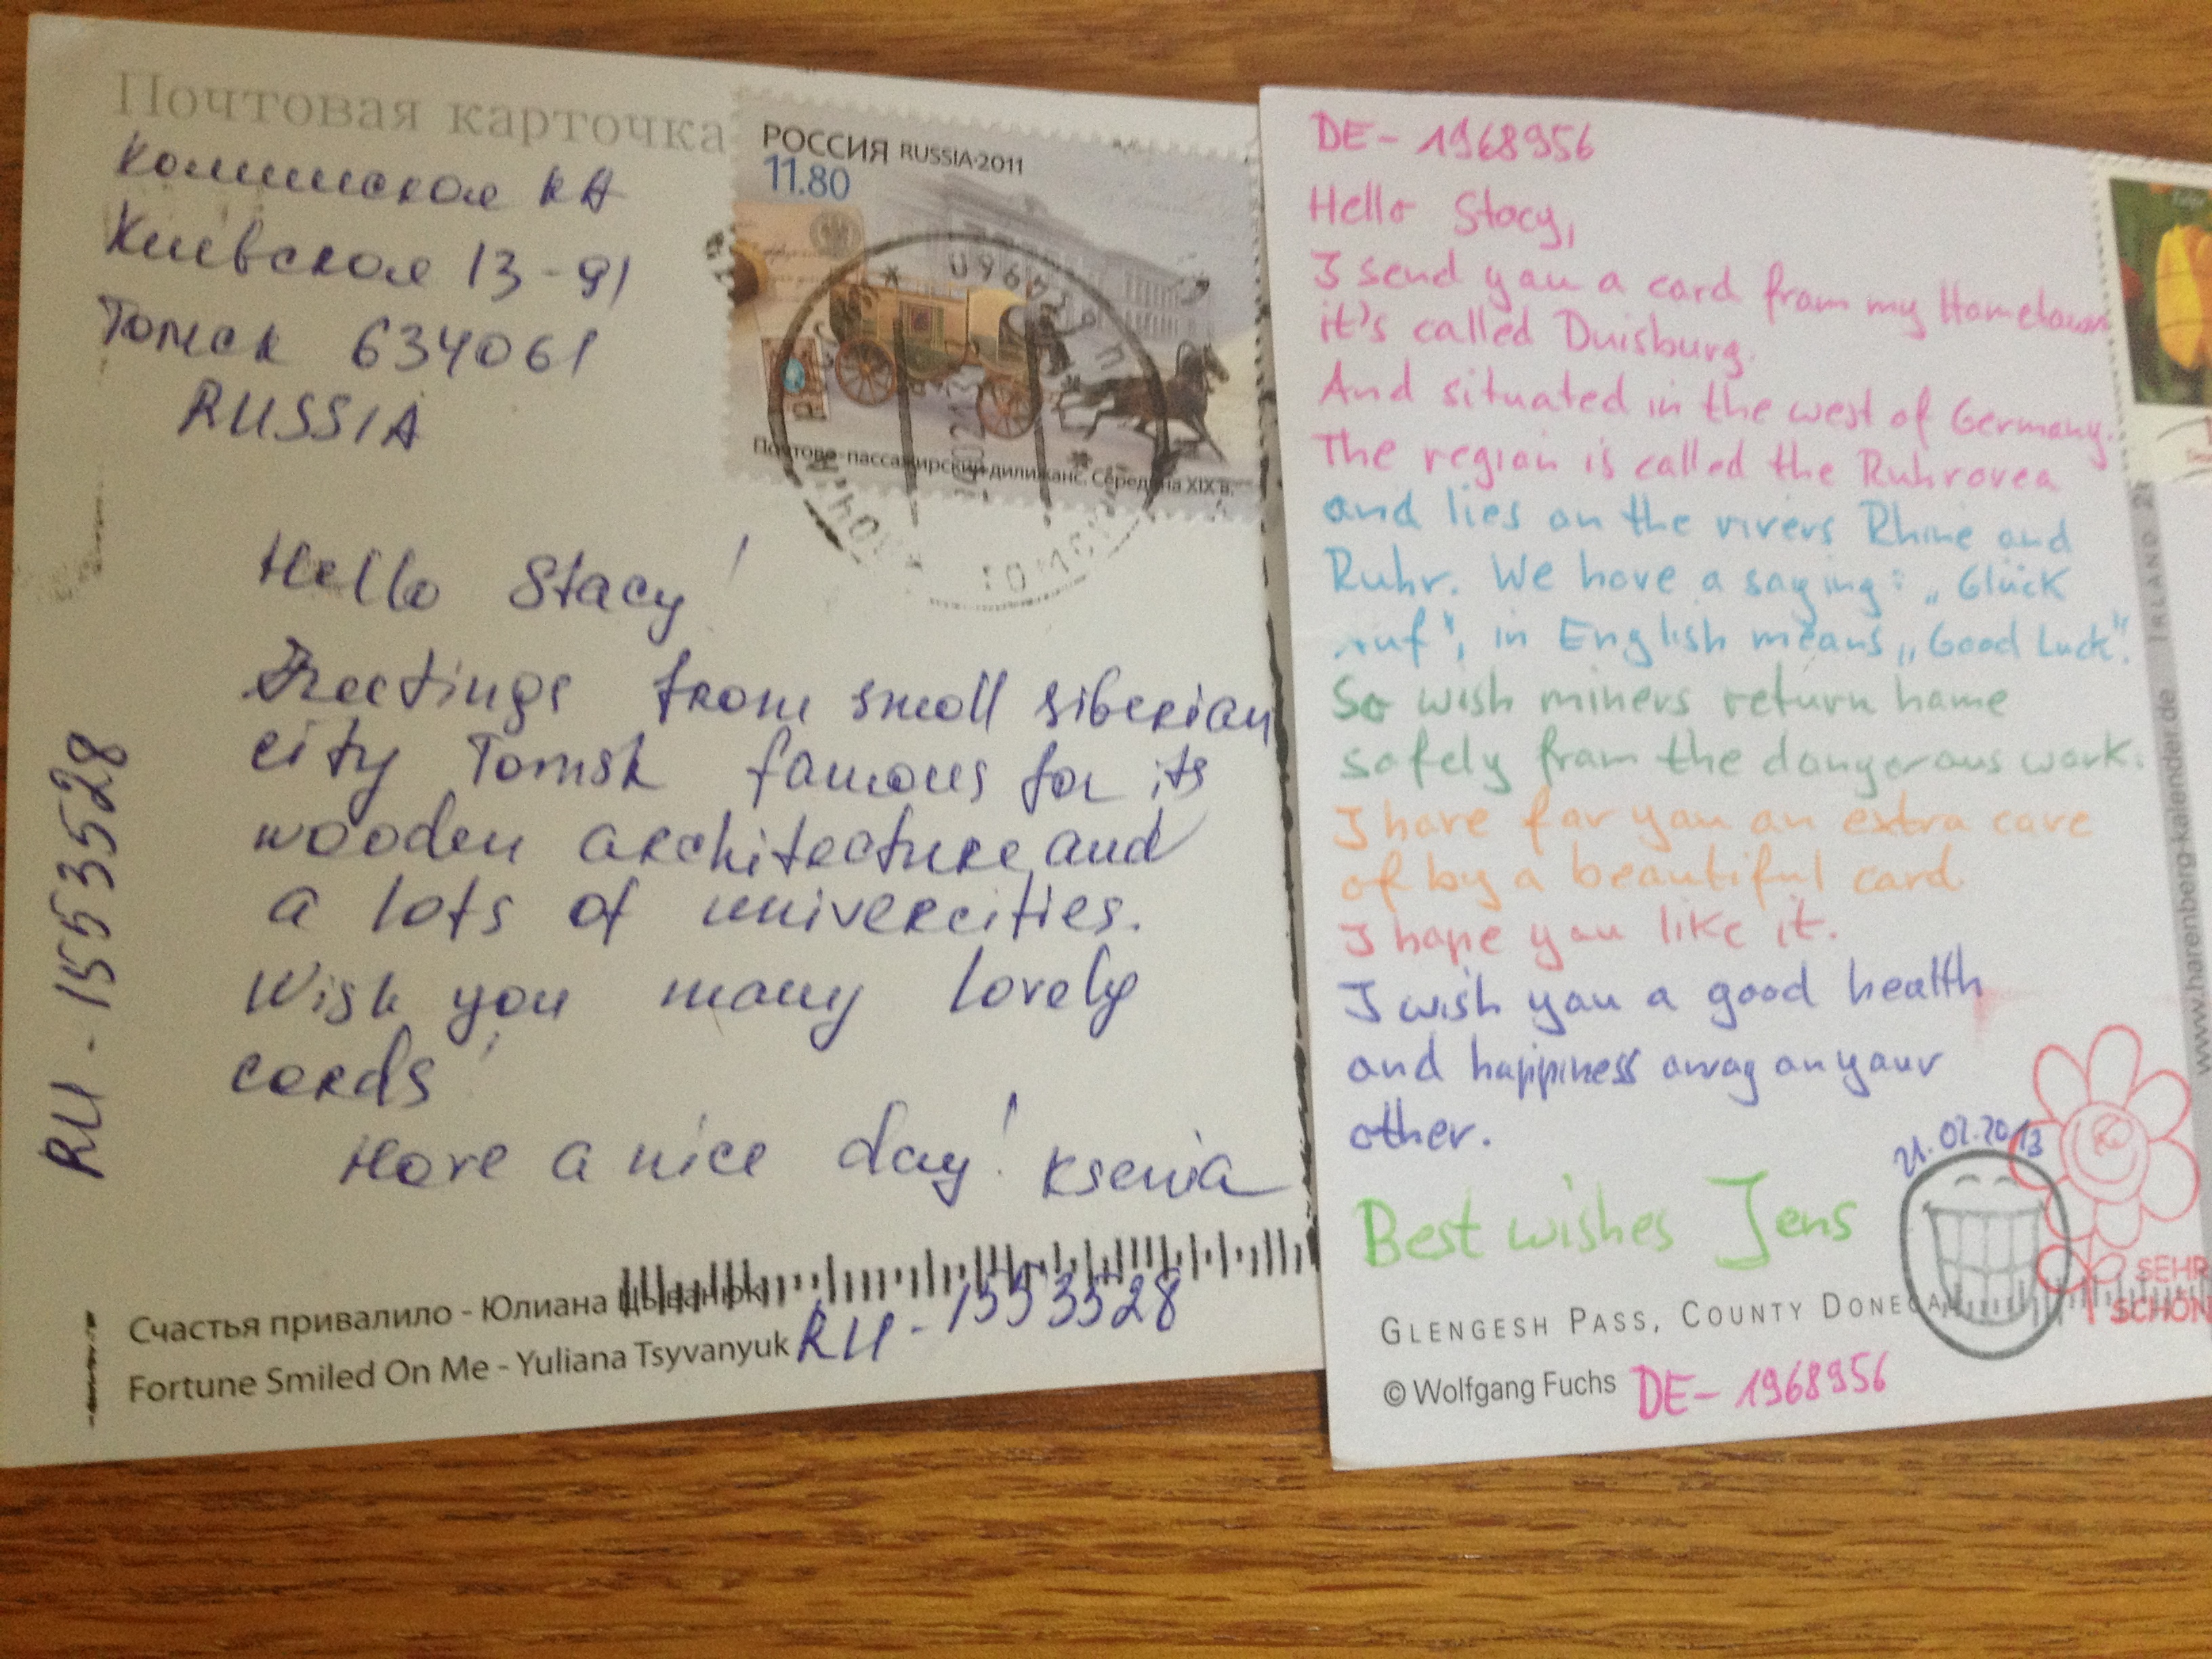 Почтовая карточка
Киевская 13-91
Томск 634061
RUSSIA
РОССИЯ RUSSIA·2011
11.80
Почтово-пассажирский дилижанс. Середина XIX в.
Hello Stacy!
Greetings from small siberian
city Tomsk famous for its
wooden architecture and
a lots of univercities.
Wish you many lovely
cards!
Have a nice day! Ksenia
RU-1553528
Счастья привалило - Юлиана Цыванюк
Fortune Smiled On Me - Yuliana Tsyvanyuk RU-1553528
DE-1968956
Hello Stacy,
I send you a card from my Hometown
it's called Duisburg.
And situated in the west of Germany.
The region is called the Ruhrarea
and lies on the rivers Rhine and
Ruhr. We have a saying: „Glück
auf", in English means „Good Luck".
So wish miners return home
safely from the dangerous work.
I have for you an extra care
of by a beautiful card.
I hope you like it.
I wish you a good health
and happiness away on your
other.
21.02.2013
Best wishes Jens
SEHR
SCHÖN
GLENGESH PASS, COUNTY DONEGAL
© Wolfgang Fuchs DE-1968956
www.harenberg-kalender.de IRLAND